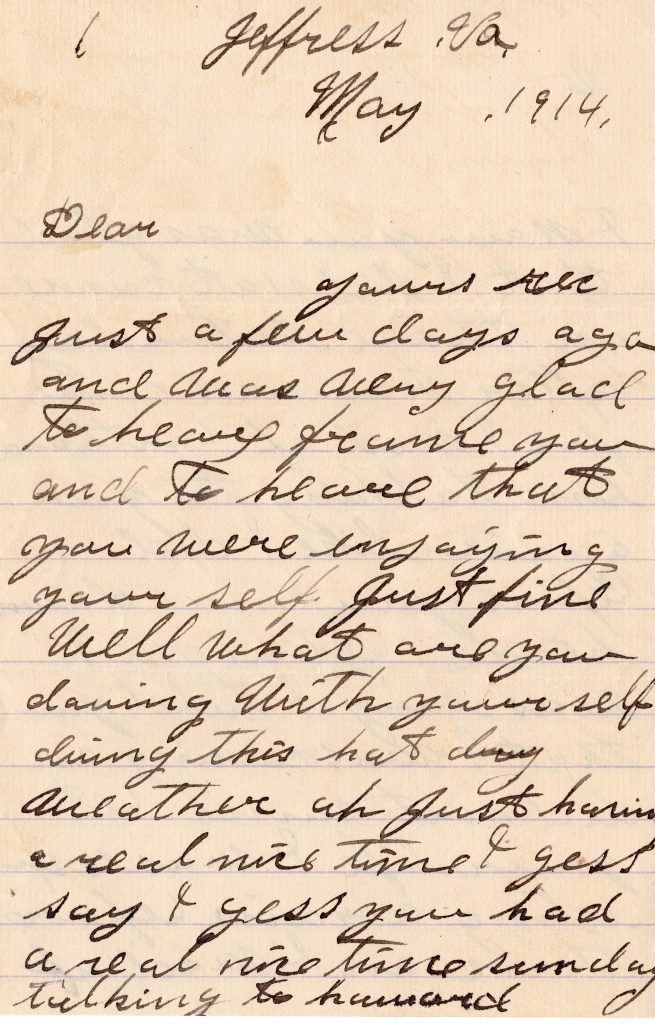 1 Jeffress .Va.
May .1914.
Dear
yours rec
just a few days ago
and was very glad
to heare frome you
and to heare that
you were enjoying
your self just fine
Well what are you
douing With your self
diing this hot dry
weather oh just having
a real nice time I gess
say I gess you had
a real nice time sunday
talking to howard